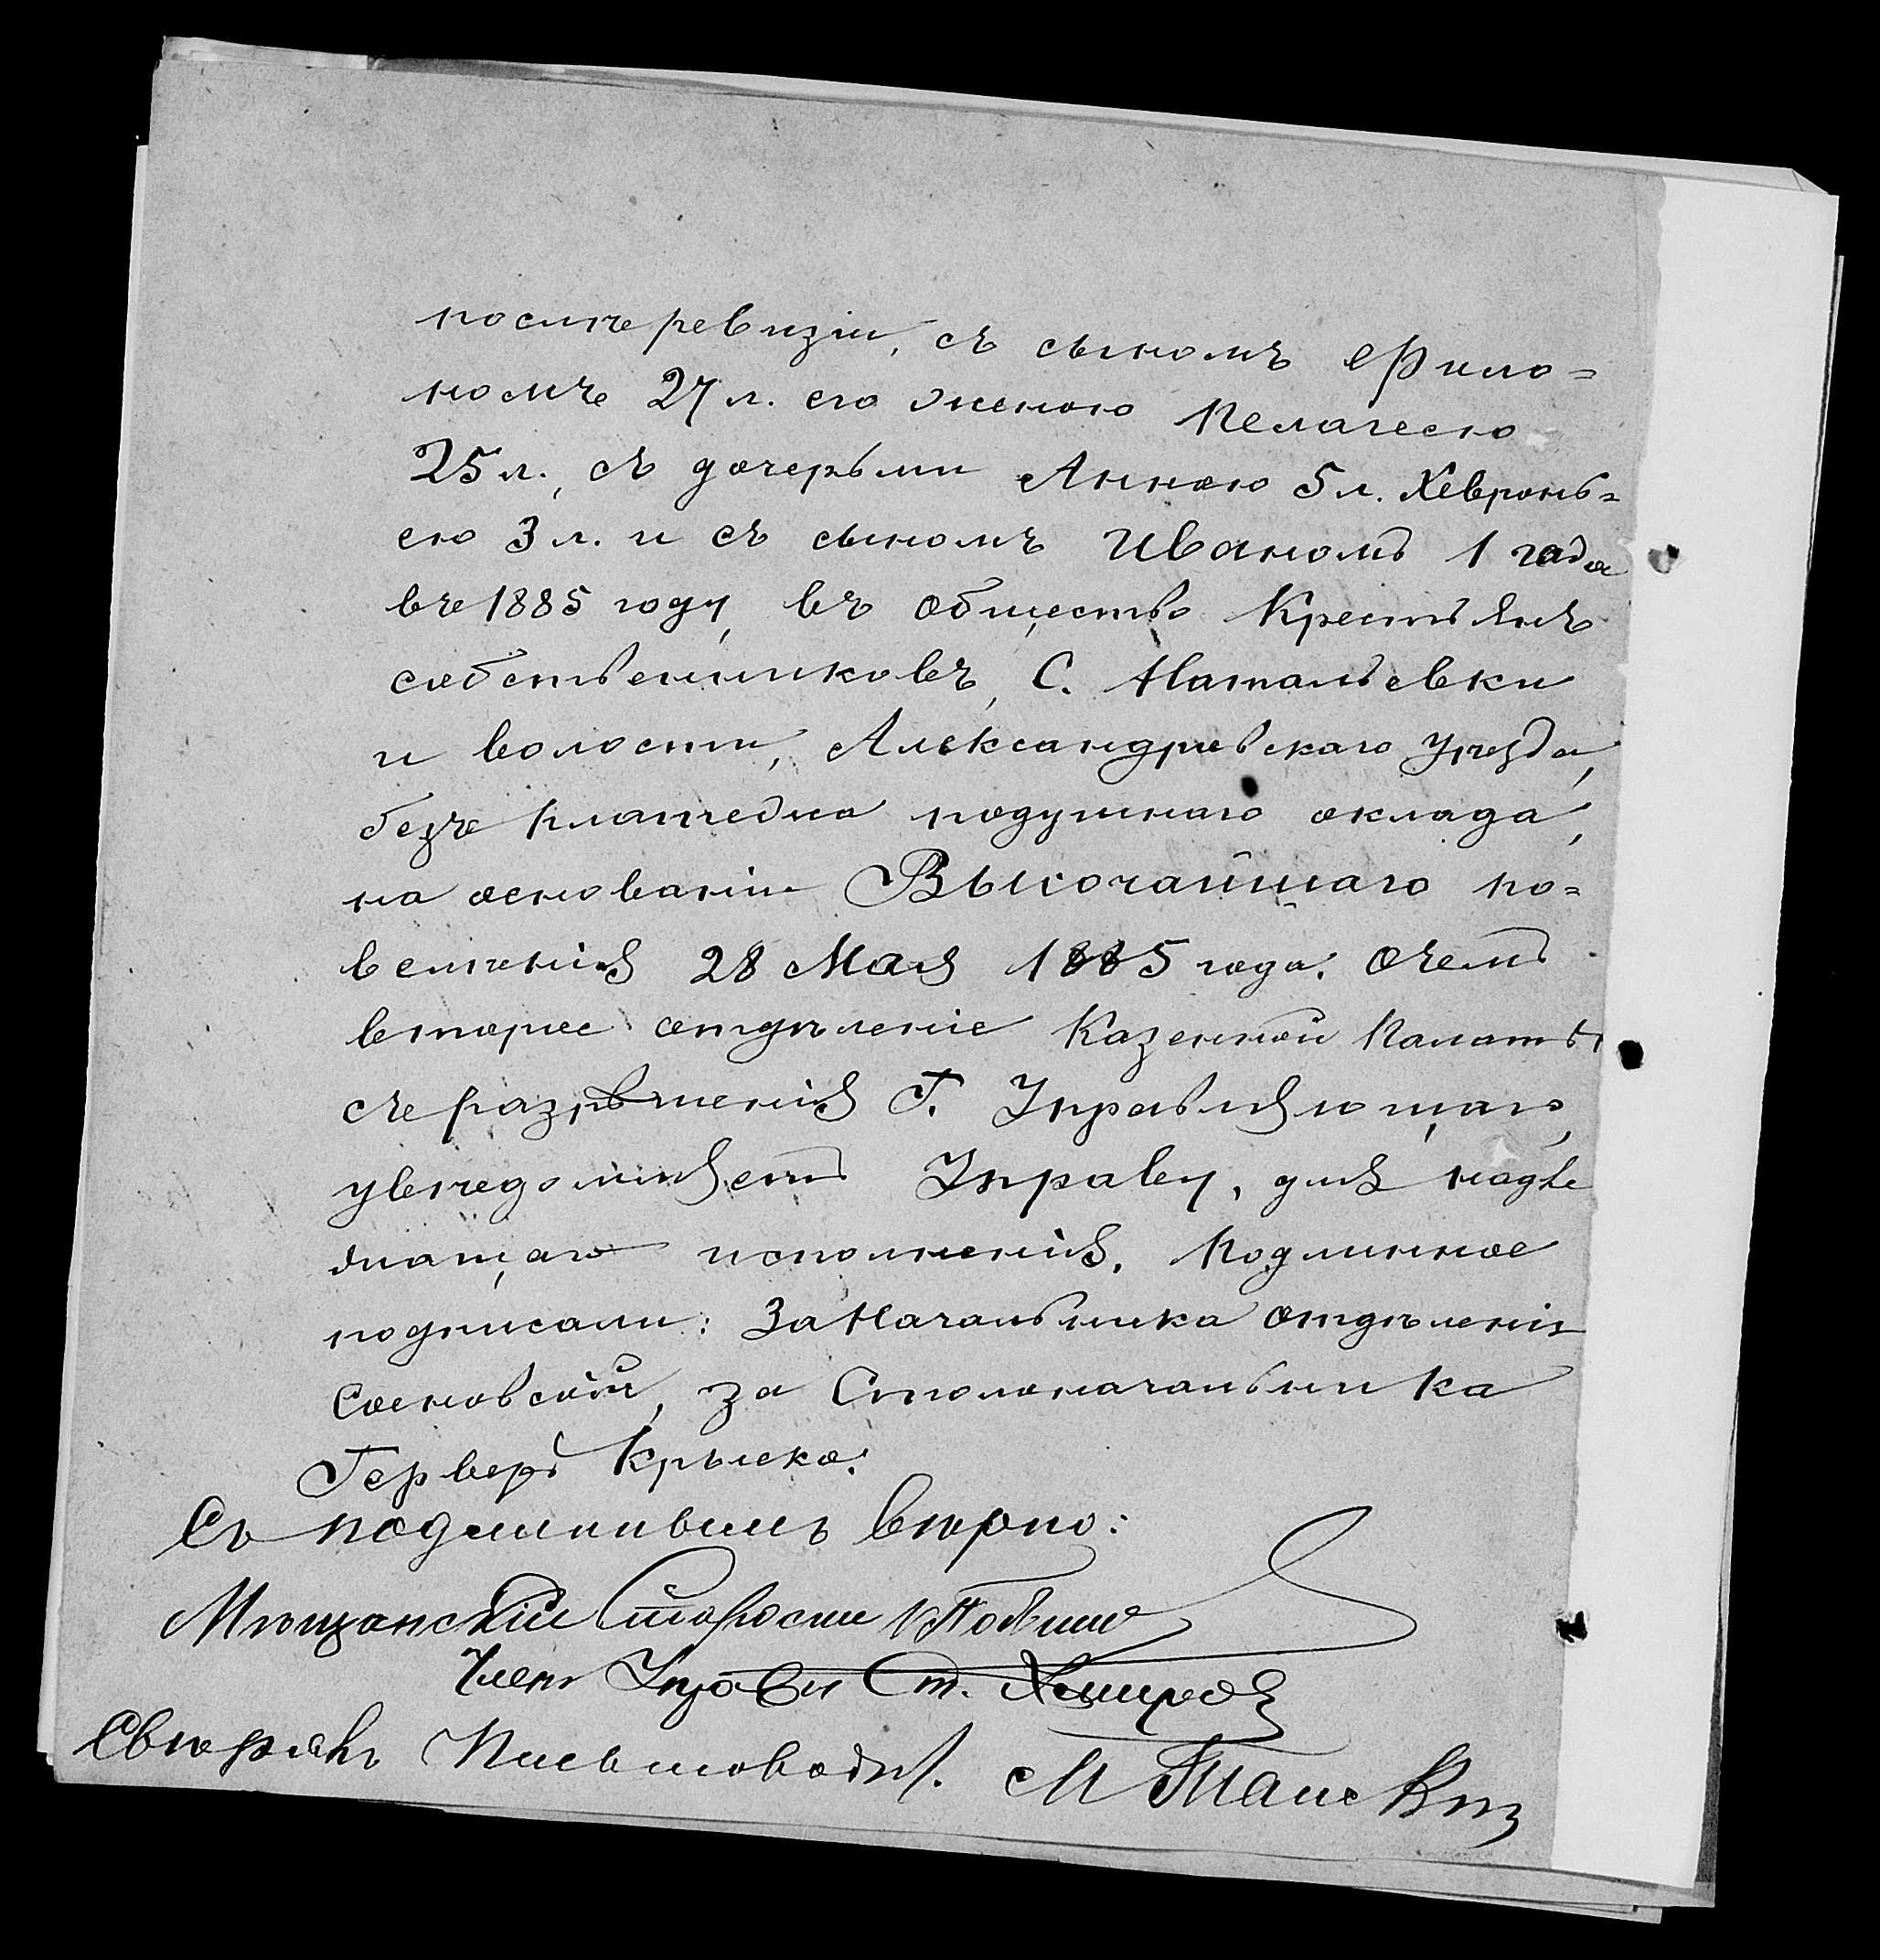 послѣ ревизіи, съ сыномъ Фило=
номъ 27 л. его женою Пелагеею
25 л., съ дочерьми Анною 5 л. Хевронь=
ею 3 л. и съ сыномъ Иваномъ 1 года
въ 1885 году, въ общество Крестьянъ
собственниковъ, С. Натальевки
и волости, Александровскаго уѣзда,
безъ платежа подушнаго оклада,
на основаніи Высочайшаго по=
велѣнія 28 Мая 1885 года. О чемъ
второе отдѣленіе Казенной Палаты
съ разрѣшенія Г. Управляющаго,
увѣдомляетъ Управу, для надле
жащаго исполненія. Подлинное
подписали: За Начальника отдѣленія
за Столоначальника
Герверъ Крыско.
Съ подлиннымъ вѣрно:
Мѣщанскій Староста
Членъ Управы Ст.
Свѣрялъ Письмовод. М